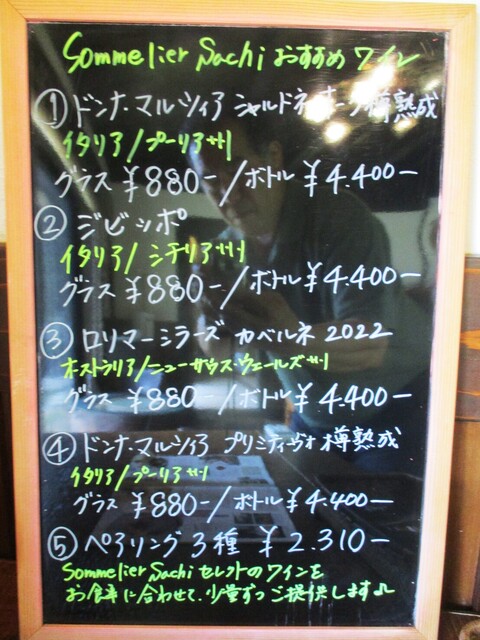 Sommelier Sachi おすすめワイン
① ドンナ・マルツィア シャルドネ オーク樽熟成
イタリア/プーリア州
グラス ¥880-/ボトル ¥4.400-
② ジビッボ
イタリア/シチリア州
グラス ¥880-/ボトル ¥4.400-
③ ロリマーミラーズ カベルネ 2022
オストラリア/ニューサウス・ウェールズ州
グラス ¥880-/ボトル ¥4.400-
④ ドンナ・マルツィア プリミティーヴォ 樽熟成
イタリア/プーリア州
グラス ¥880-/ボトル ¥4.400-
⑤ ペアリング 3種 ¥2.310-
Sommelier Sachi セレクトのワインを
お食事に合わせて、少量ずつご提供します♪